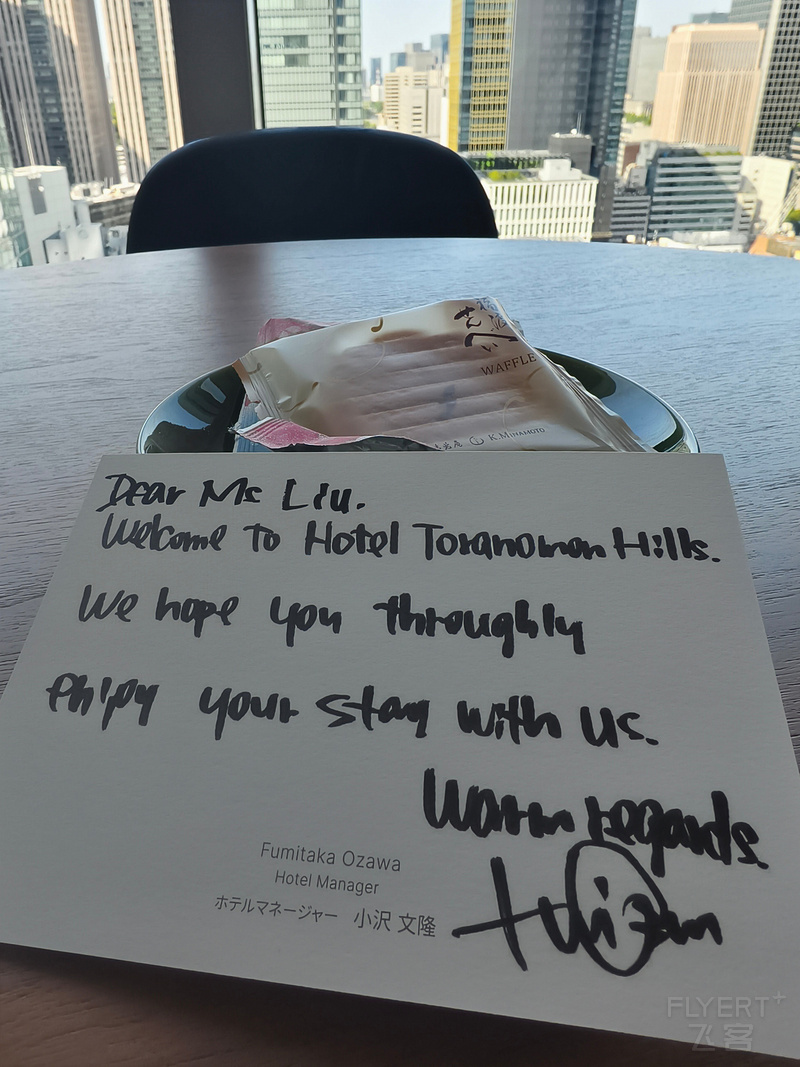 WAFFLE
K. MINAMOTO
Dear Ms Liu.
Welcome to Hotel Toranomon Hills.
We hope you throughly
enjoy your stay with us.
Warm regards.
Fumitaka Ozawa
Hotel Manager
ホテルマネージャー 小沢 文隆
FLYERT+
飞客